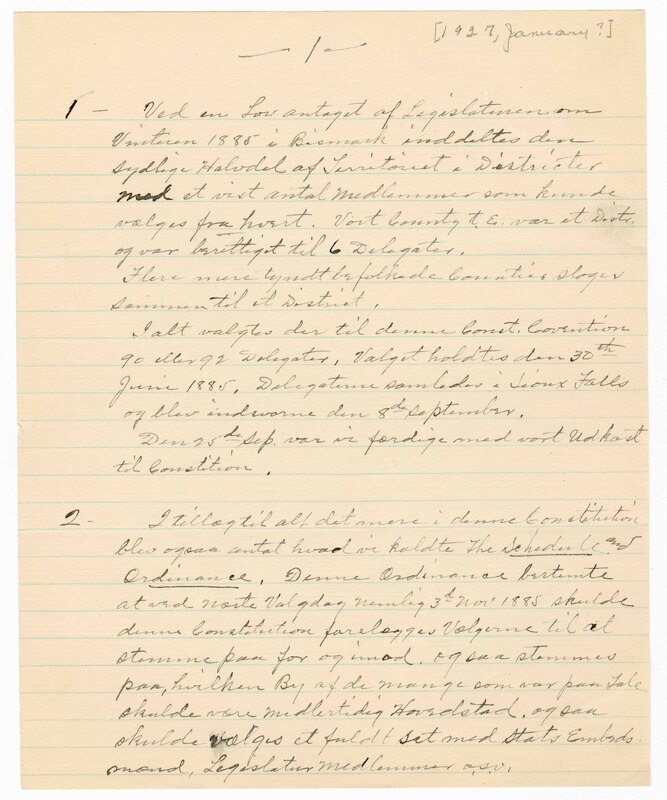 [1927, January?]
— 1 —
1 — Ved en Lov antaget af Legislaturen om
Vinteren 1885 i Bismark inddeltes den
sydlige Halvdel af Territoriet i Districter
med et vist antal Medlemmer som kunde
vælges fra hvert. Vort County var et Distr.
og var berettiget til 6 Delegater.
Flere mere tyndt befolkede Counties sloges
sammen til et District.
I alt valgtes der til denne Const. Covention
90 eller 92 Delegater. Valget holdtes den 30th
Juni 1885. Delegaterne samledes i Sioux Falls
og blev indsvorne den 8de September.
Den 25de Sep. var vi færdige med vort Udkast
til Constition.
2 - I tillæg til alt det mere i denne Constitution
blev ogsaa antat hvad vi kaldte The Schedule and
Ordinance. Denne Ordinance bestemte
at ved Næste Valgdag Nemlig 3d Nov 1885 skulde
denne Constitution forelægges Vælgerne til at
stemme paa for og imod. ogsaa stemmes
paa, hvilken By af de mange som var paa Tale
skulde være midlertidig Hovedstad. ogsaa
skulde vælges et fuldt Set med Stats Embeds
mænd, Legislatur Medlemmer o.s.v.